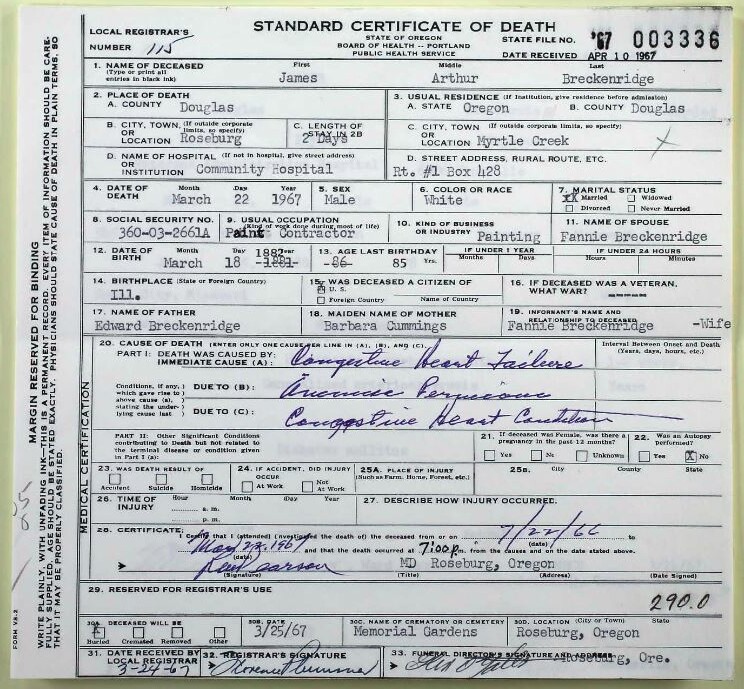 STANDARD CERTIFICATE OF DEATH
STATE OF OREGON
BOARD OF HEALTH -- PORTLAND
PUBLIC HEALTH SERVICE
LOCAL REGISTRAR'S NUMBER 115
STATE FILE NO. '67 003336
DATE RECEIVED APR 10 1967
1. NAME OF DECEASED (Type or print all entries in black ink) First James Middle Arthur Last Breckenridge
2. PLACE OF DEATH
A. COUNTY Douglas
3. USUAL RESIDENCE (If institution, give residence before admission)
A. STATE Oregon B. COUNTY Douglas
B. CITY, TOWN, OR LOCATION (If outside corporate limits, so specify) Roseburg
C. LENGTH OF STAY IN 2B 2 Days
C. CITY, TOWN, OR LOCATION (If outside corporate limits, so specify) Myrtle Creek
D. NAME OF HOSPITAL OR INSTITUTION (If not in hospital, give street address) Community Hospital
D. STREET ADDRESS, RURAL ROUTE, ETC. Rt. #1 Box 428
4. DATE OF DEATH Month March Day 22 Year 1967
5. SEX Male
6. COLOR OR RACE White
7. MARITAL STATUS XX Married Widowed Divorced Never Married
8. SOCIAL SECURITY NO. 360-03-2661A
9. USUAL OCCUPATION (Kind of work done during most of life) Paint Contractor
10. KIND OF BUSINESS OR INDUSTRY Painting
11. NAME OF SPOUSE Fannie Breckenridge
12. DATE OF BIRTH Month March Day 18 Year 1882 1881
13. AGE LAST BIRTHDAY 86 85 Yrs.
IF UNDER 1 YEAR Months Days
IF UNDER 24 HOURS Hours Minutes
14. BIRTHPLACE (State or Foreign Country) Ill.
15. WAS DECEASED A CITIZEN OF X U. S. Foreign Country Name of Country
16. IF DECEASED WAS A VETERAN, WHAT WAR? ---
17. NAME OF FATHER Edward Breckenridge
18. MAIDEN NAME OF MOTHER Barbara Cummings
19. INFORMANT'S NAME AND RELATIONSHIP TO DECEASED Fannie Breckenridge -Wife
20. CAUSE OF DEATH (ENTER ONLY ONE CAUSE PER LINE IN (A), (B), AND (C).)
Interval Between Onset and Death (Years, days, hours, etc.)
PART I: DEATH WAS CAUSED BY: IMMEDIATE CAUSE (A): Congestive Heart Failure
Conditions, if any, which gave rise to above cause (a), stating the underlying cause last
DUE TO (B):
DUE TO (C): Congestive Heart
PART II: Other Significant Conditions contributing to Death but not related to the terminal disease or condition given in Part I(a):
21. If deceased was Female, was there a pregnancy in the past 12 months? Yes No Unknown
22. Was an Autopsy performed? Yes X No
23. WAS DEATH RESULT OF Accident Suicide Homicide
24. IF ACCIDENT, DID INJURY OCCUR At Work Not At Work
25A. PLACE OF INJURY (Such as Farm, Home, Forest, etc.)
25B. City County State
26. TIME OF INJURY Hour Month Day Year a. m. p. m.
27. DESCRIBE HOW INJURY OCCURRED.
28. CERTIFICATE: I Certify that I (attended) (investigated) the death of the deceased from or on 7/22/66 (date) to
Mar 22, 1967 (date) and that the death occurred at 7:00 p. m. from the causes and on the date stated above.
(Signature) MD (Title) Roseburg, Oregon (Address) (Date Signed)
29. RESERVED FOR REGISTRAR'S USE
290.0
30A. DECEASED WILL BE X Buried Cremated Removed Other
30B. DATE 3/25/67
30C. NAME OF CREMATORY OR CEMETERY Memorial Gardens
30D. LOCATION (City or Town) State Roseburg, Oregon
31. DATE RECEIVED BY LOCAL REGISTRAR 3-24-67
32. REGISTRAR'S SIGNATURE
33. FUNERAL DIRECTOR'S SIGNATURE AND ADDRESS Roseburg, Ore.
MEDICAL CERTIFICATION
MARGIN RESERVED FOR BINDING
WRITE PLAINLY, WITH UNFADING INK—THIS IS A PERMANENT RECORD. EVERY ITEM OF INFORMATION SHOULD BE CAREFULLY SUPPLIED. AGE SHOULD BE STATED EXACTLY. PHYSICIANS SHOULD STATE CAUSE OF DEATH IN PLAIN TERMS, SO THAT IT MAY BE PROPERLY CLASSIFIED.
FORM VS-2